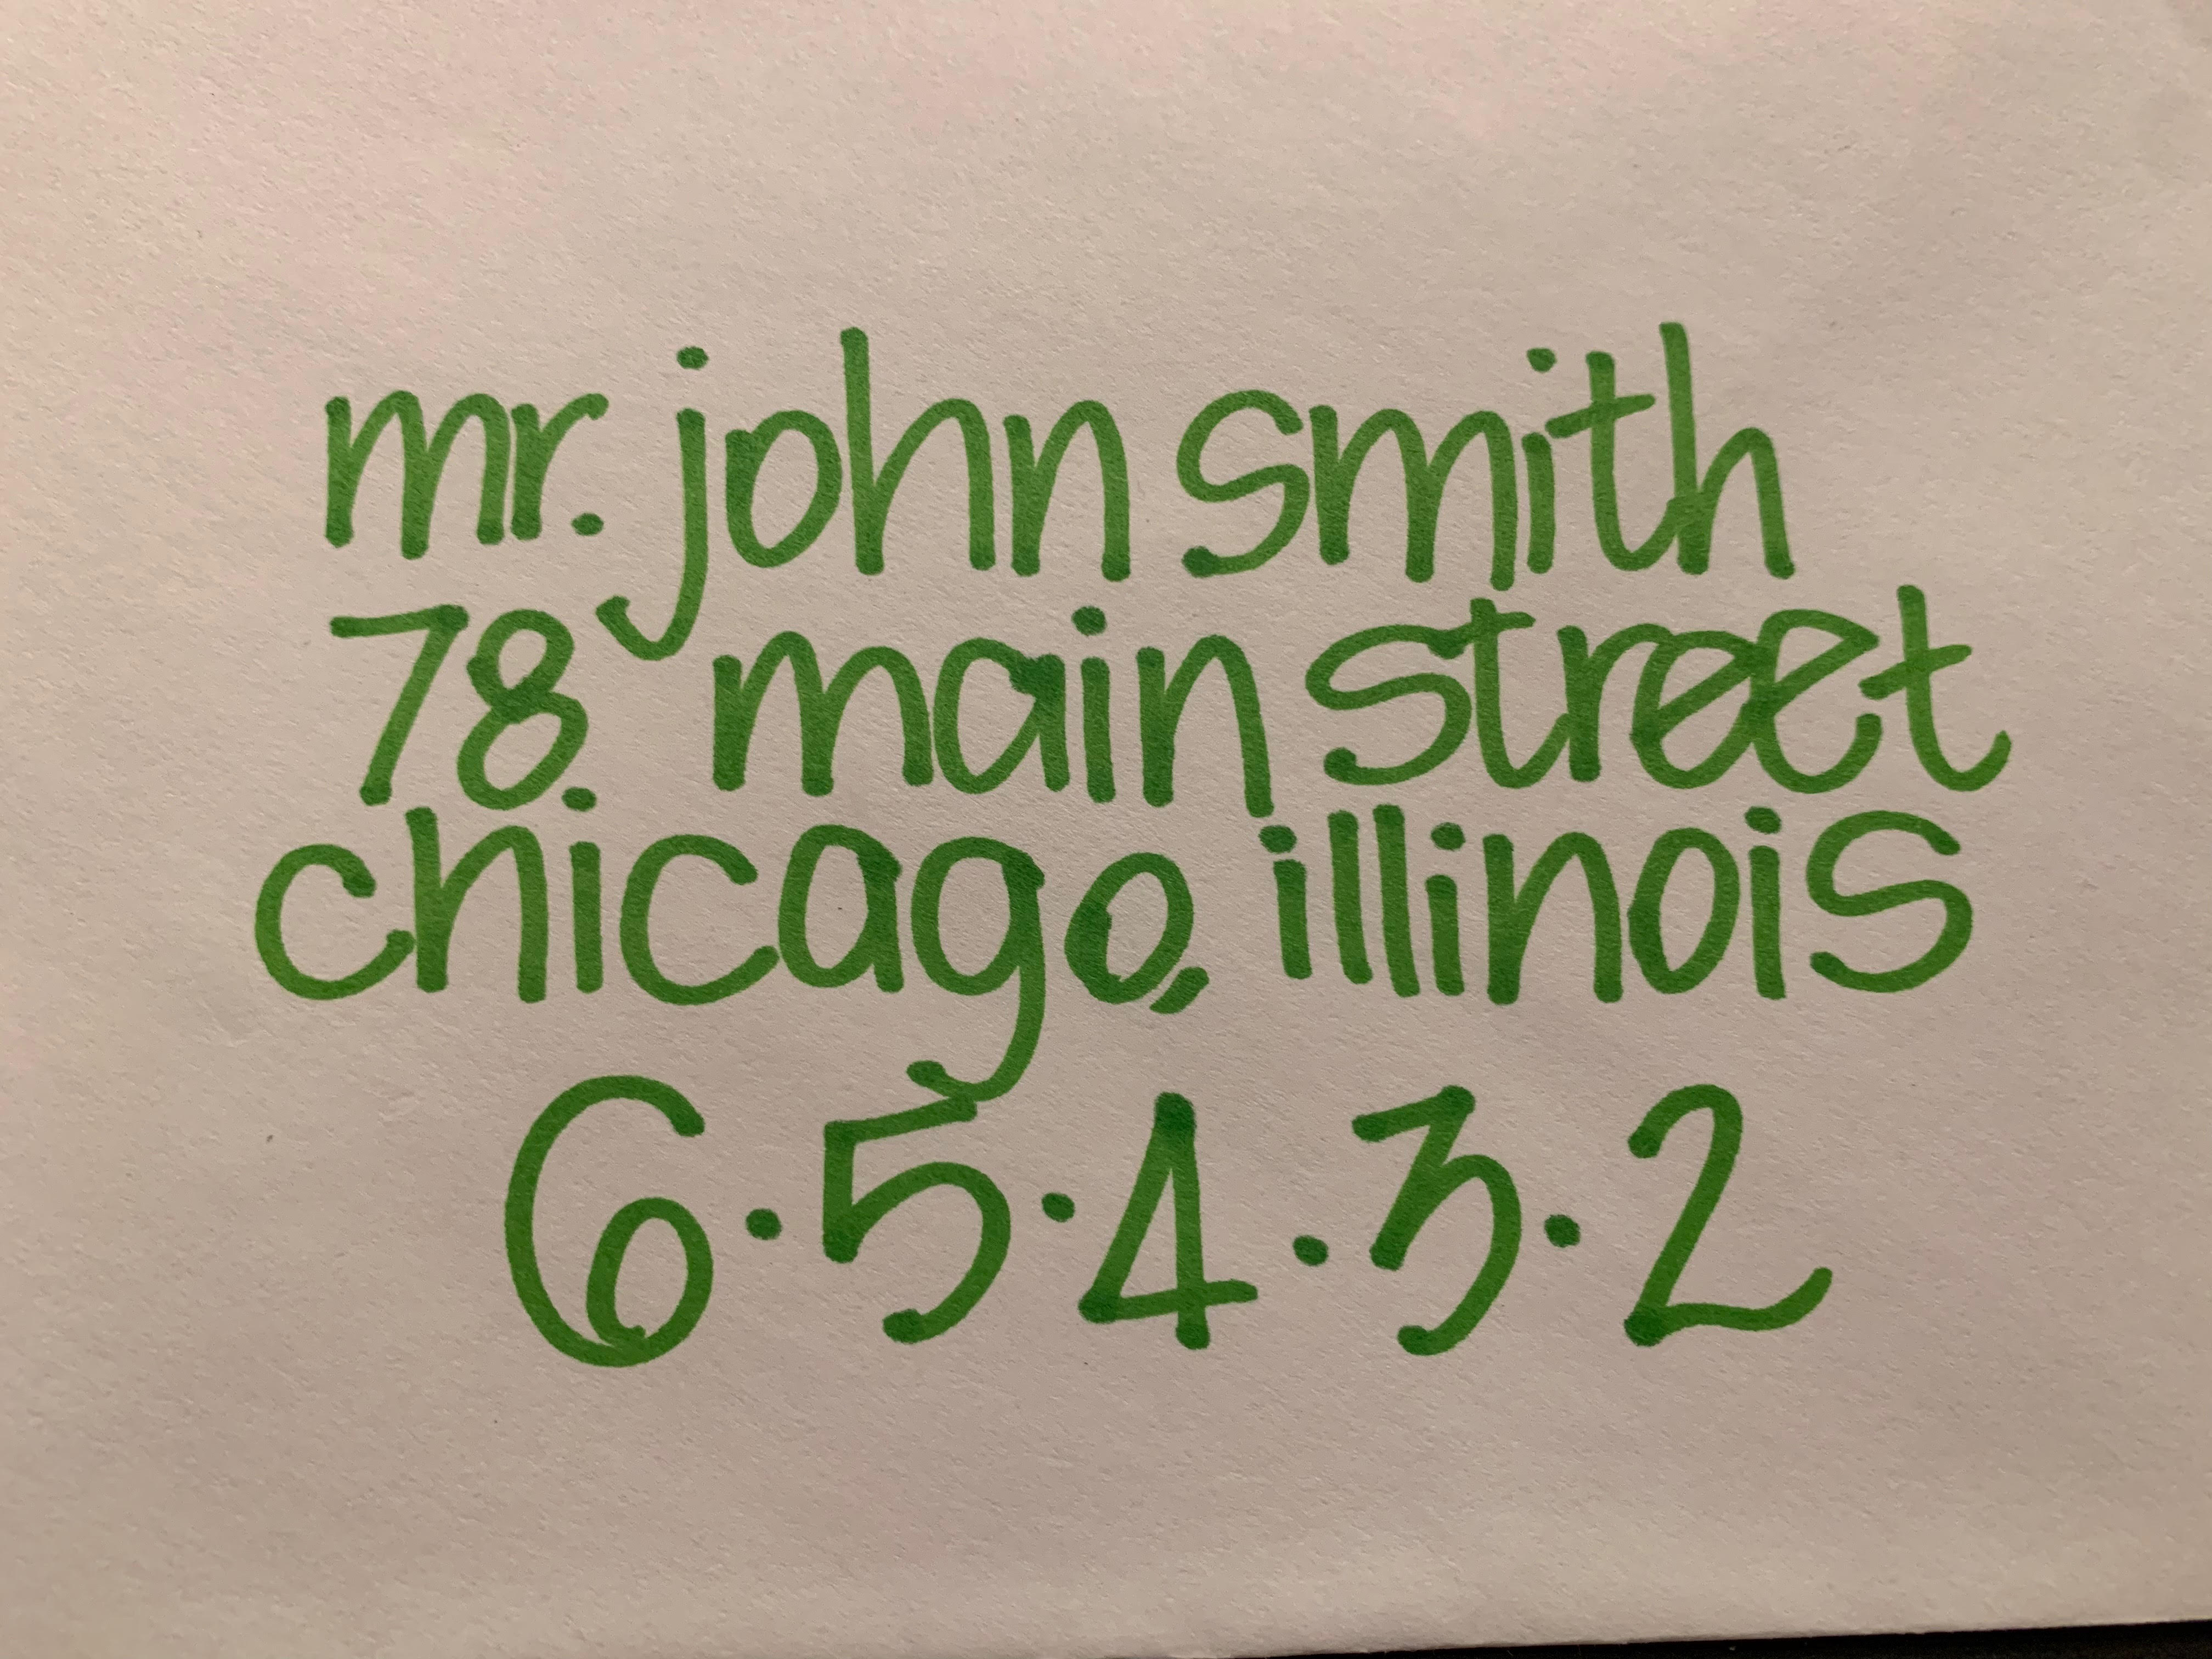 mr. john smith
78 main street
chicago, illinois
6·5·4·3·2